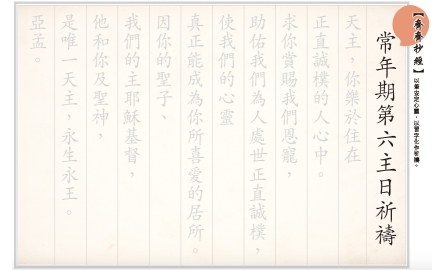 【齊齊抄經】
以筆安定心靈，以習字化作祈禱。
常年期第六主日祈禱
天主，你樂於住在
正直誠樸的人心中。
求你賞賜我們恩寵，
助佑我們為人處世正直誠樸，
使我們的心靈
真正能成為你所喜愛的居所。
因你的聖子、
我們的主耶穌基督，
他和你及聖神，
是唯一天主，永生永王。
亞孟。